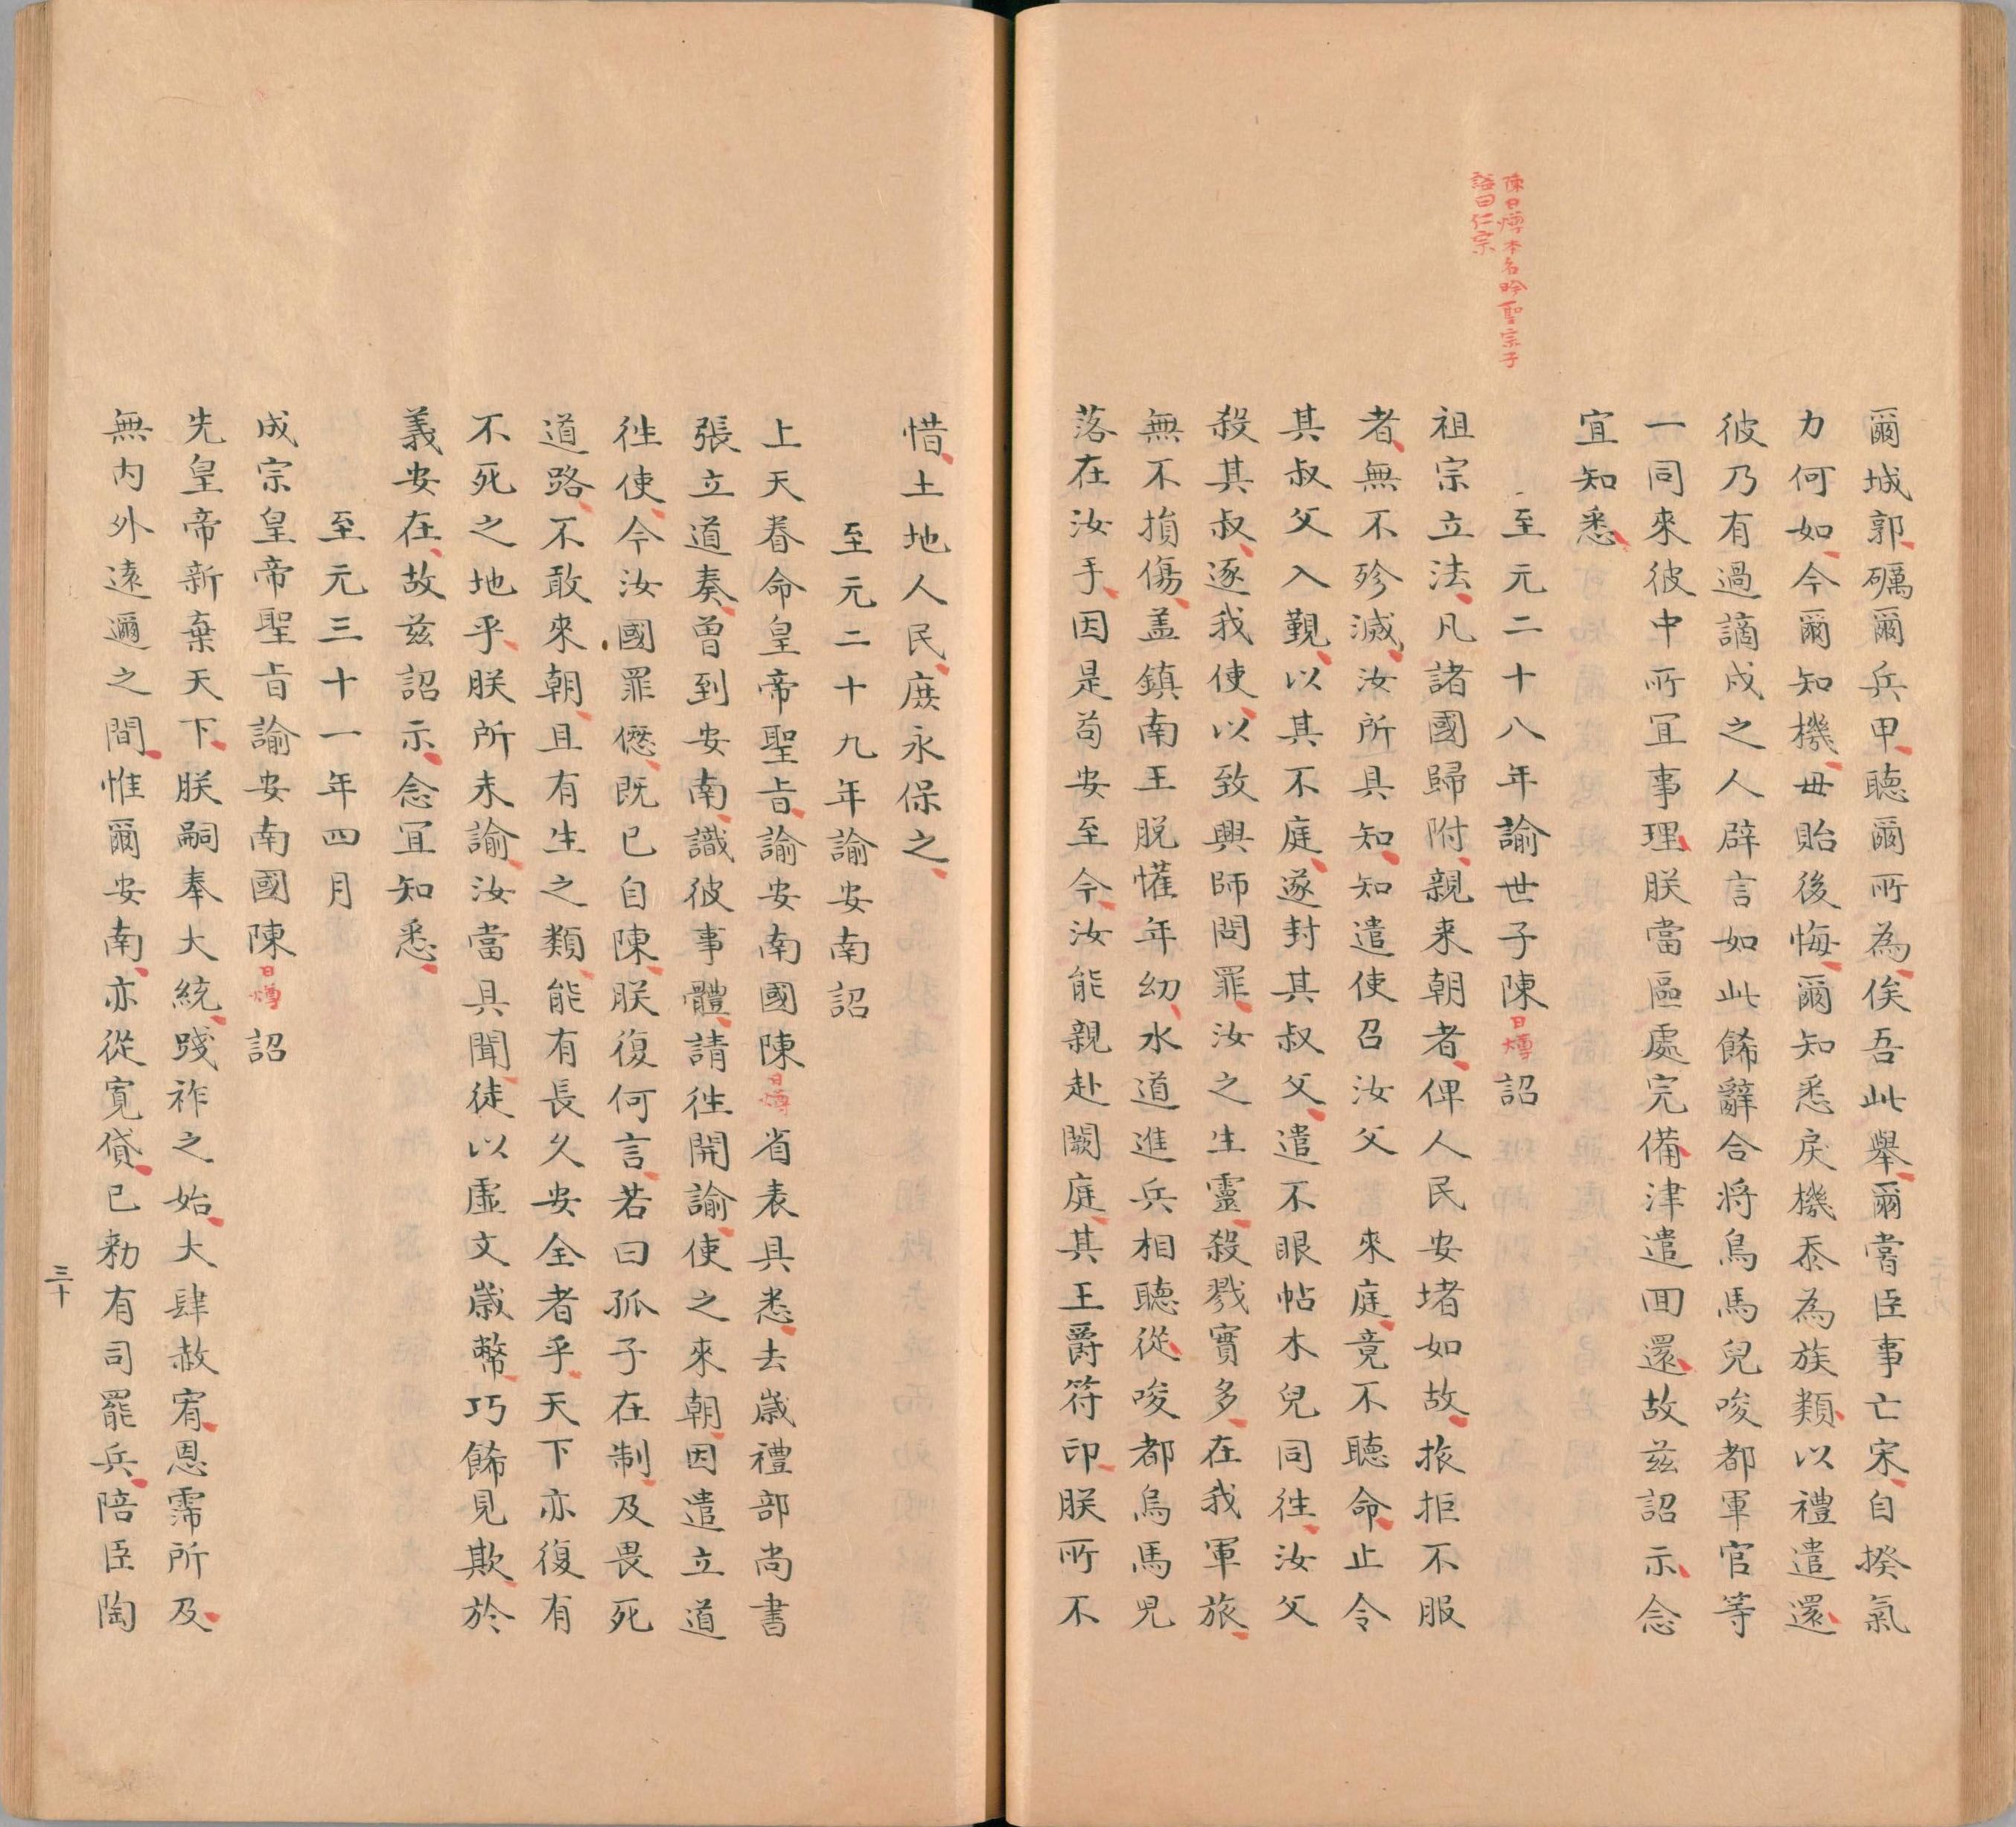 爾城郭礪爾兵甲聽爾所為俟吾此舉爾嘗臣事亡宋自揆氣
力何如今爾知機毋貽後悔爾知悉戾機忝為族類以禮遣還
彼乃有過謫戍之人辟言如此餙辭合將烏馬兒唆都軍官等
一同來彼中所宜事理朕當區處完備津遣囬還故兹詔示念
宜知悉
陳日燇本名昑聖宗子
諡曰仁宗
至元二十八年諭世子陳日燇詔
祖宗立法凡諸國歸附親來朝者俾人民安堵如故抜拒不服
者無不殄滅汝所具知知遣使召汝父來庭竟不聽命止令
其叔父入覲以其不庭遂封其叔父遣不眼帖木兒同徃汝父
殺其叔逐我使以致興師問罪汝之生靈殺戮實多在我軍旅
無不損傷盖鎮南王脫懽年幼水道進兵相聽從唆都烏馬児
落在汝手因是苟安至今汝能親赴闕庭其王爵符印朕所不
惜土地人民庶永保之
至元二十九年諭安南詔
上天眷命皇帝聖旨諭安南國陳日燇省表具悉去歲禮部尚書
張立道奏曾到安南識彼事體請徃開諭使之來朝因遣立道
徃使今汝國罪愆既已自陳朕復何言若曰孤子在制及畏死
道路不敢來朝且有生之類能有長久安全者乎天下亦復有
不死之地乎朕所未諭汝當具聞徒以虛文歲幣巧餙見欺於
義安在故兹詔示念宜知悉
至元三十一年四月
成宗皇帝聖旨諭安南國陳日燇詔
先皇帝新棄天下朕嗣奉大統踐祚之始大肆赦宥恩霈所及
無内外逺邇之間惟爾安南亦從寛貸已勑有司罷兵陪臣陶
三十